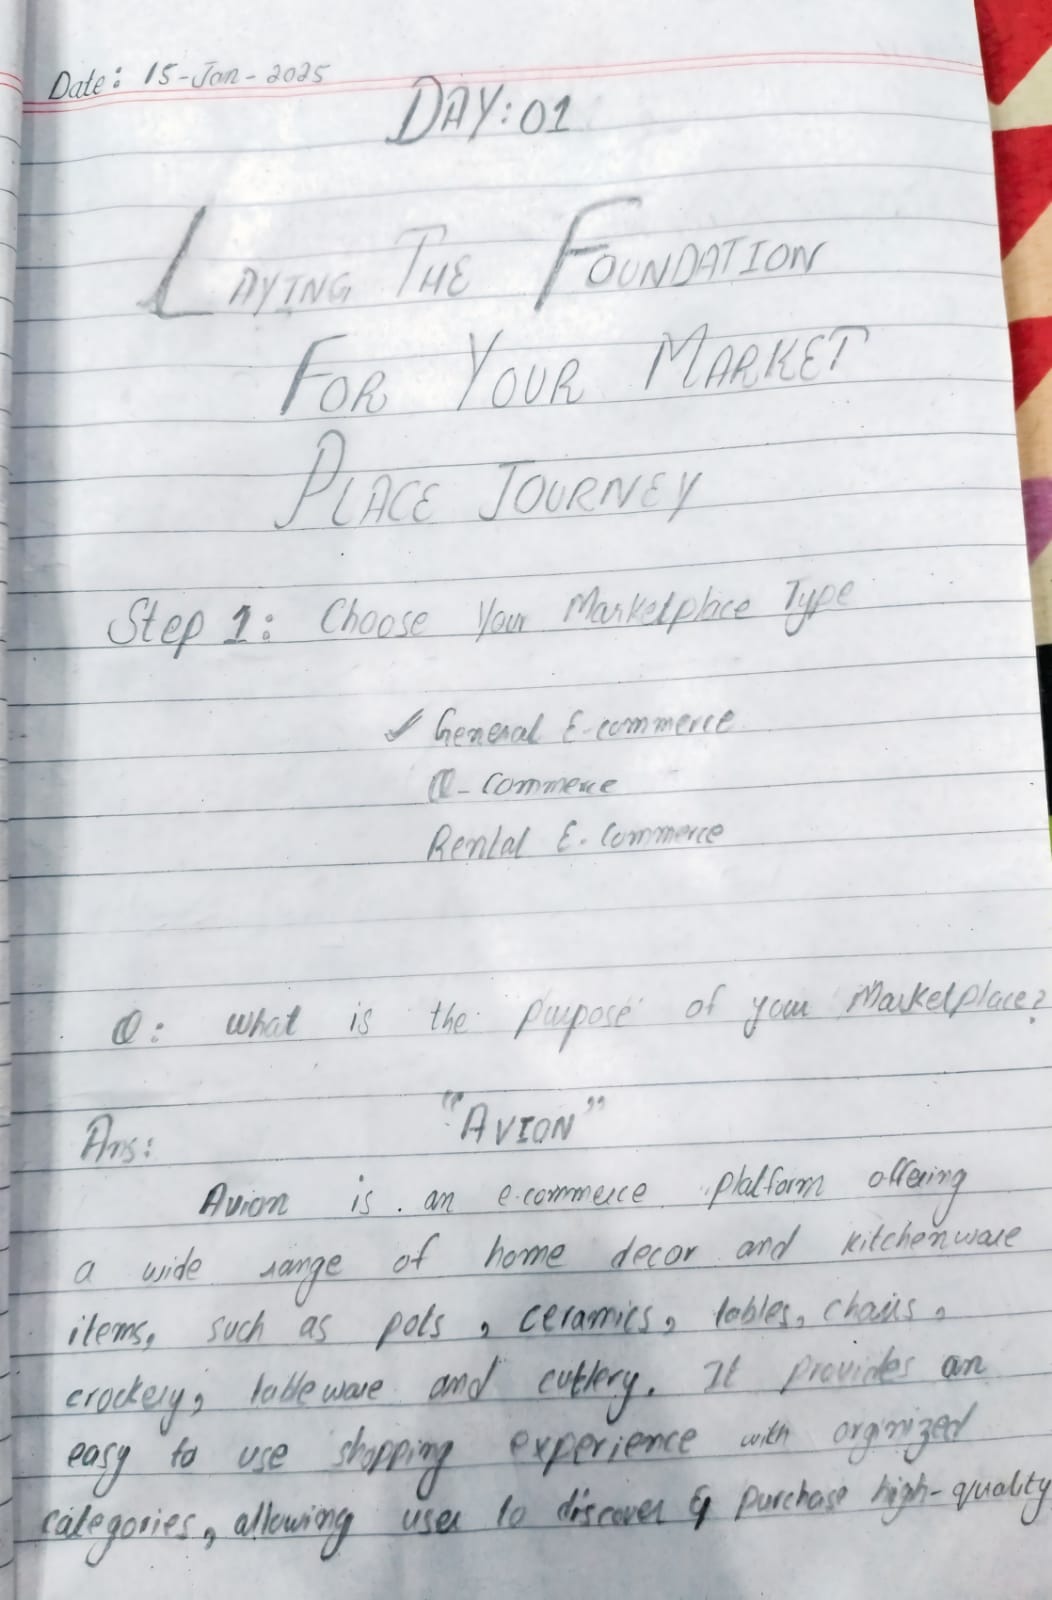 Date: 15-Jan-2025
DAY:01
LAYING THE FOUNDATION
FOR YOUR MARKET
PLACE JOURNEY
Step 1: Choose Your Marketplace Type
✓ General E-commerce
Q-Commerce
Rental E-Commerce
Q: What is the purpose of your Marketplace?
Ans: "AVION"
Avion is an e-commerce platform offering
a wide range of home decor and kitchenware
items, such as pots, ceramics, tables, chairs,
crockery, tableware and cutlery. It provides an
easy to use shopping experience with orgnized
categories, allowing user to discover & purchase high-quality